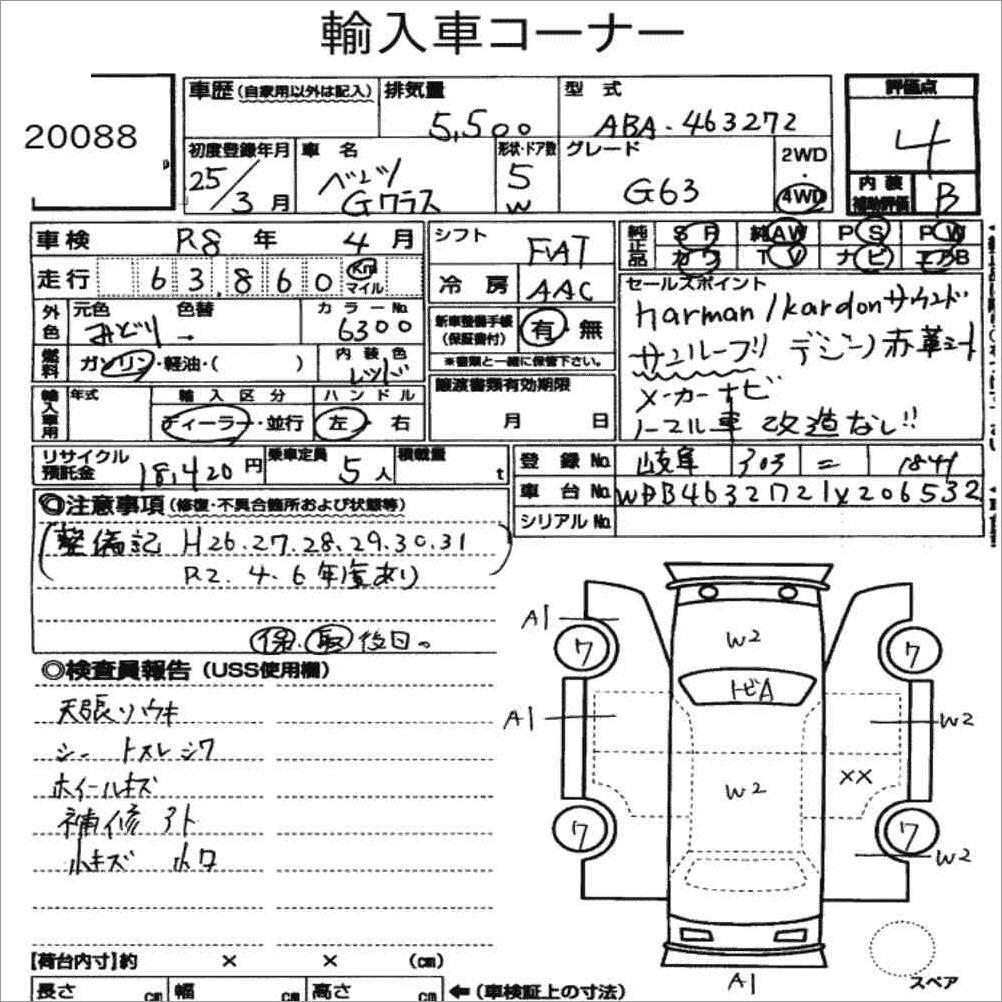 輸入車コーナー
20088
車歴 (自家用以外は記入)
排気量 5,500
型式 ABA-463272
評価点 4
初度登録年月 25/3月
車名 ベンツ Gクラス
形状・ドア数 5 W
グレード G63
2WD・4WD
内装補助評価 B
車検 R8年 4月
シフト FAT
純正品 SR 純AW PS PW
カワ TV ナビ エアB
走行 63,860 Km マイル
冷房 AAC
セールスポイント
harman/kardonサウンド
サンルーフ!! デジーノ赤革シート
メーカーナビ
ノーマル車 改造なし!!
外色 元色 みどり 色替 → カラーNo. 6300
新車整備手帳(保証書付) 有・無
※書類と一緒に保管下さい。
燃料 ガソリン・軽油・( )
内装色 レッド
譲渡書類有効期限
月 日
輸入車用 年式 輸入区分 ディーラー・並行 ハンドル 左・右
リサイクル預託金 18,420円
乗車定員 5人
積載量 t
登録No. 岐阜 303 = 1841
車台No. WDB4632721X206532
シリアルNo.
◎注意事項 (修復・不具合箇所および状態等)
(整備記 H26.27.28.29.30.31
R2.4.6年度あり)
保・取 後日。
◎検査員報告 (USS使用欄)
天張ソウキ
シートスレシワ
ホイールキズ
補修アト
小キズ 小ワ
A1
ワ
W2
ワ
トビA
A1
W2
W2
XX
ワ
ワ
W2
A1
スペア
【荷台内寸】約 × × (cm)
長さ cm 幅 cm 高さ cm ←(車検証上の寸法)